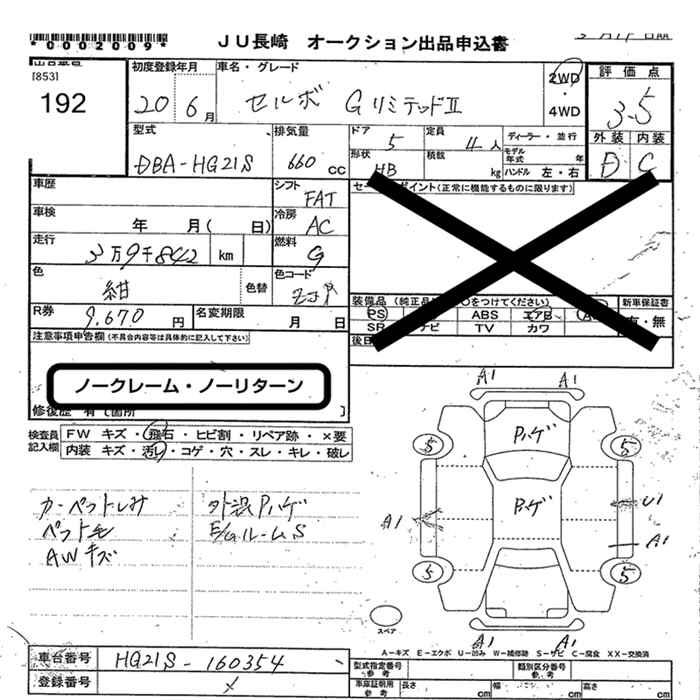 *0002009*
JU長崎 オークション出品申込書
[853]
192
初度登録年月
20 6月
車名・グレード
セルボ GリミテッドⅡ
2WD
・
4WD
評価点
3.5
外装 内装
D C
型式
DBA-HG21S
排気量
660 cc
ドア 5
定員 4人
ディーラー・並行
形状 HB
積載 kg
モデル年式 年
ハンドル 左・右
車歴
シフト FAT
車検 年 月( 日)
冷房 AC
走行 3万9千842 km
燃料 G
色 紺 色替
色コード ZJP
R券 9,670 円
名変期限 月 日
ポイント(正常に機能するものに限ります)
装備品
をつけてください)
新車保証書
PS ABS エアB
SR ナビ TV カワ 有・無
注意事項申告欄(不具合内容等は具体的に記入して下さい)
ノークレーム・ノーリターン
修復歴 有[箇所 ]
検査員記入欄
FW キズ・飛石・ヒビ割・リペア跡・×要
内装 キズ・汚れ・コゲ・穴・スレ・キレ・破レ
カーペットしみ
ペット毛
AWキズ
外装Pハゲ
E/GルームS
A1 A1
Pハゲ
5 5
Pハゲ
A1 U1
A1
5 5
スペア
A1 A1
A-キズ E-エクボ U-凹み W-補修跡 S-サビ C-腐食 XX-交換済
車台番号 HG21S-160354
登録番号
型式指定番号 参考
類別区分番号 参考
車庫証明用 参考 長さ cm 幅 cm 高さ cm